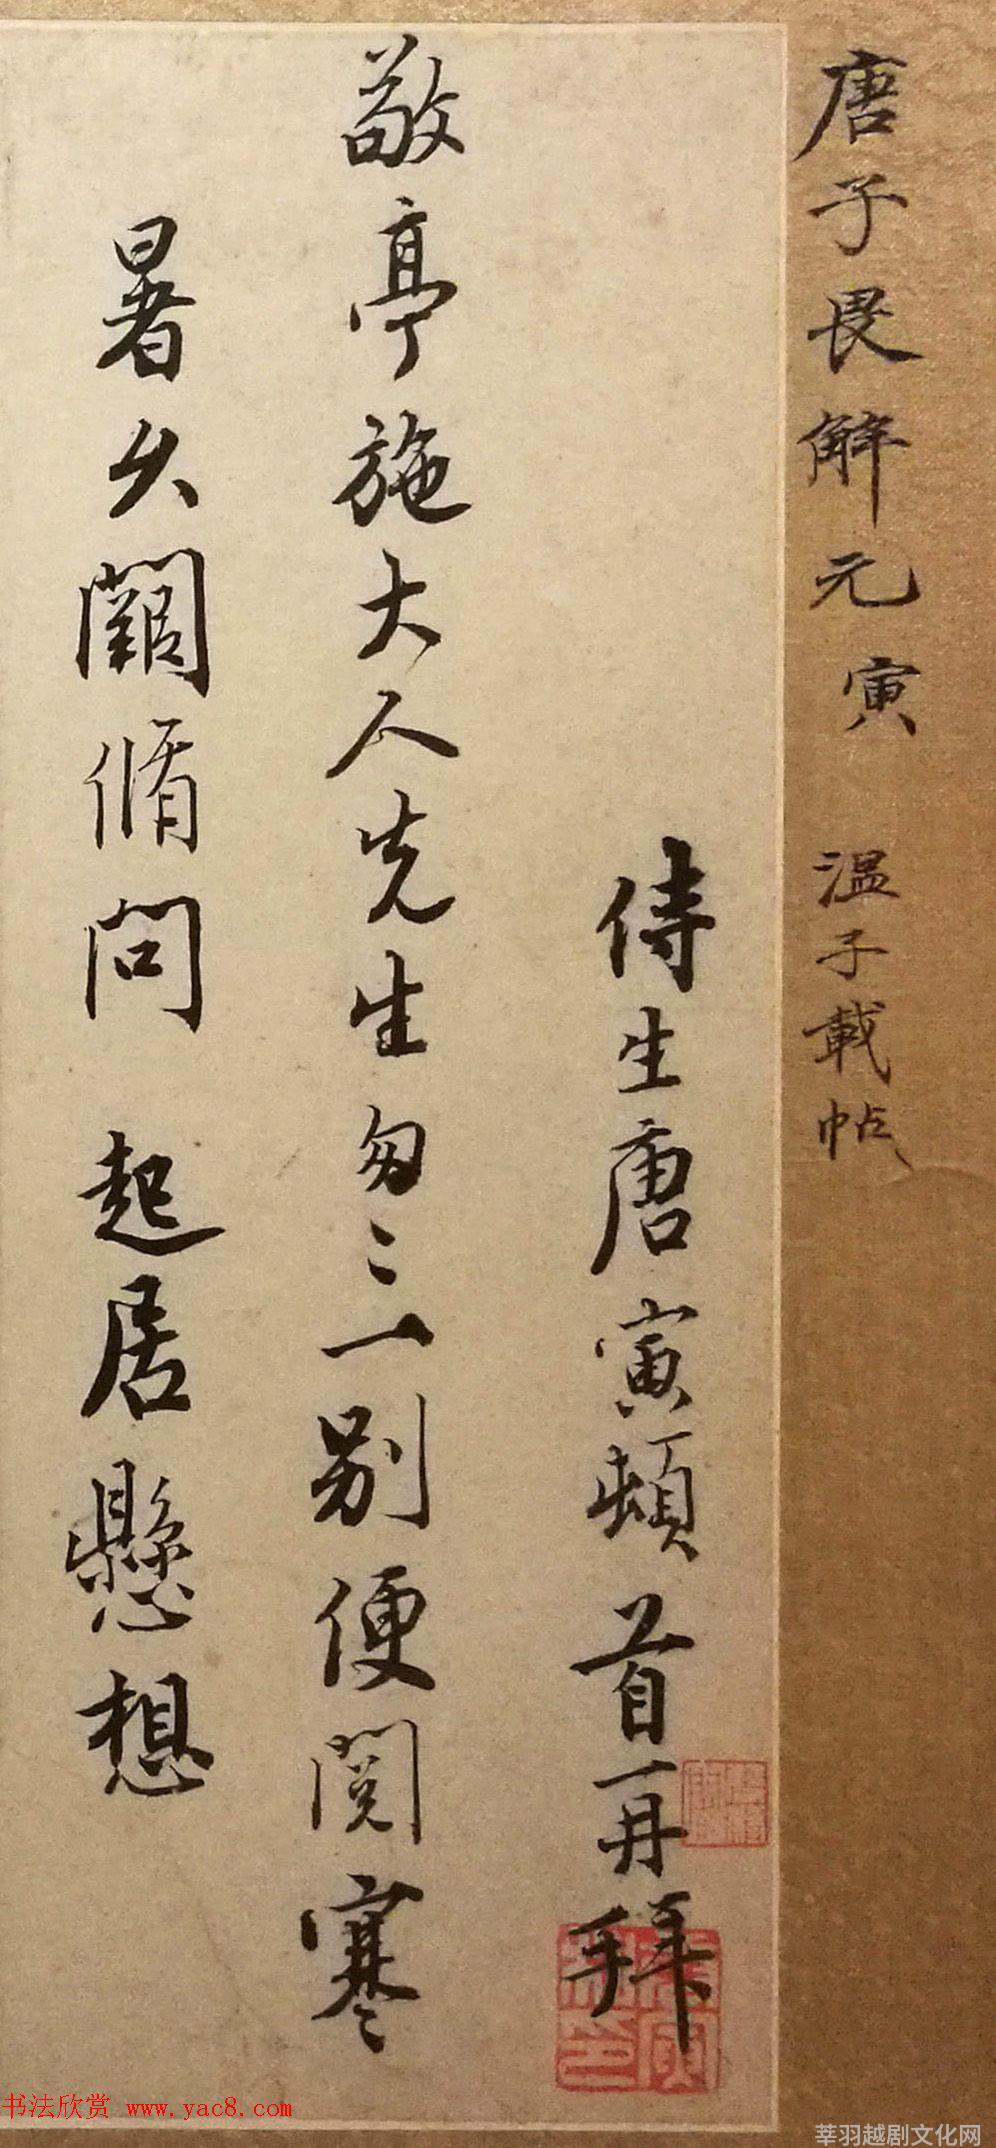 唐子畏解元寅　温子載帖
侍生唐寅頓首再拜
敬亭施大人先生匆〻一别便閲寒
暑久闊脩問　起居懸想
书法欣赏 www.yac8.com
莘羽越剧文化网